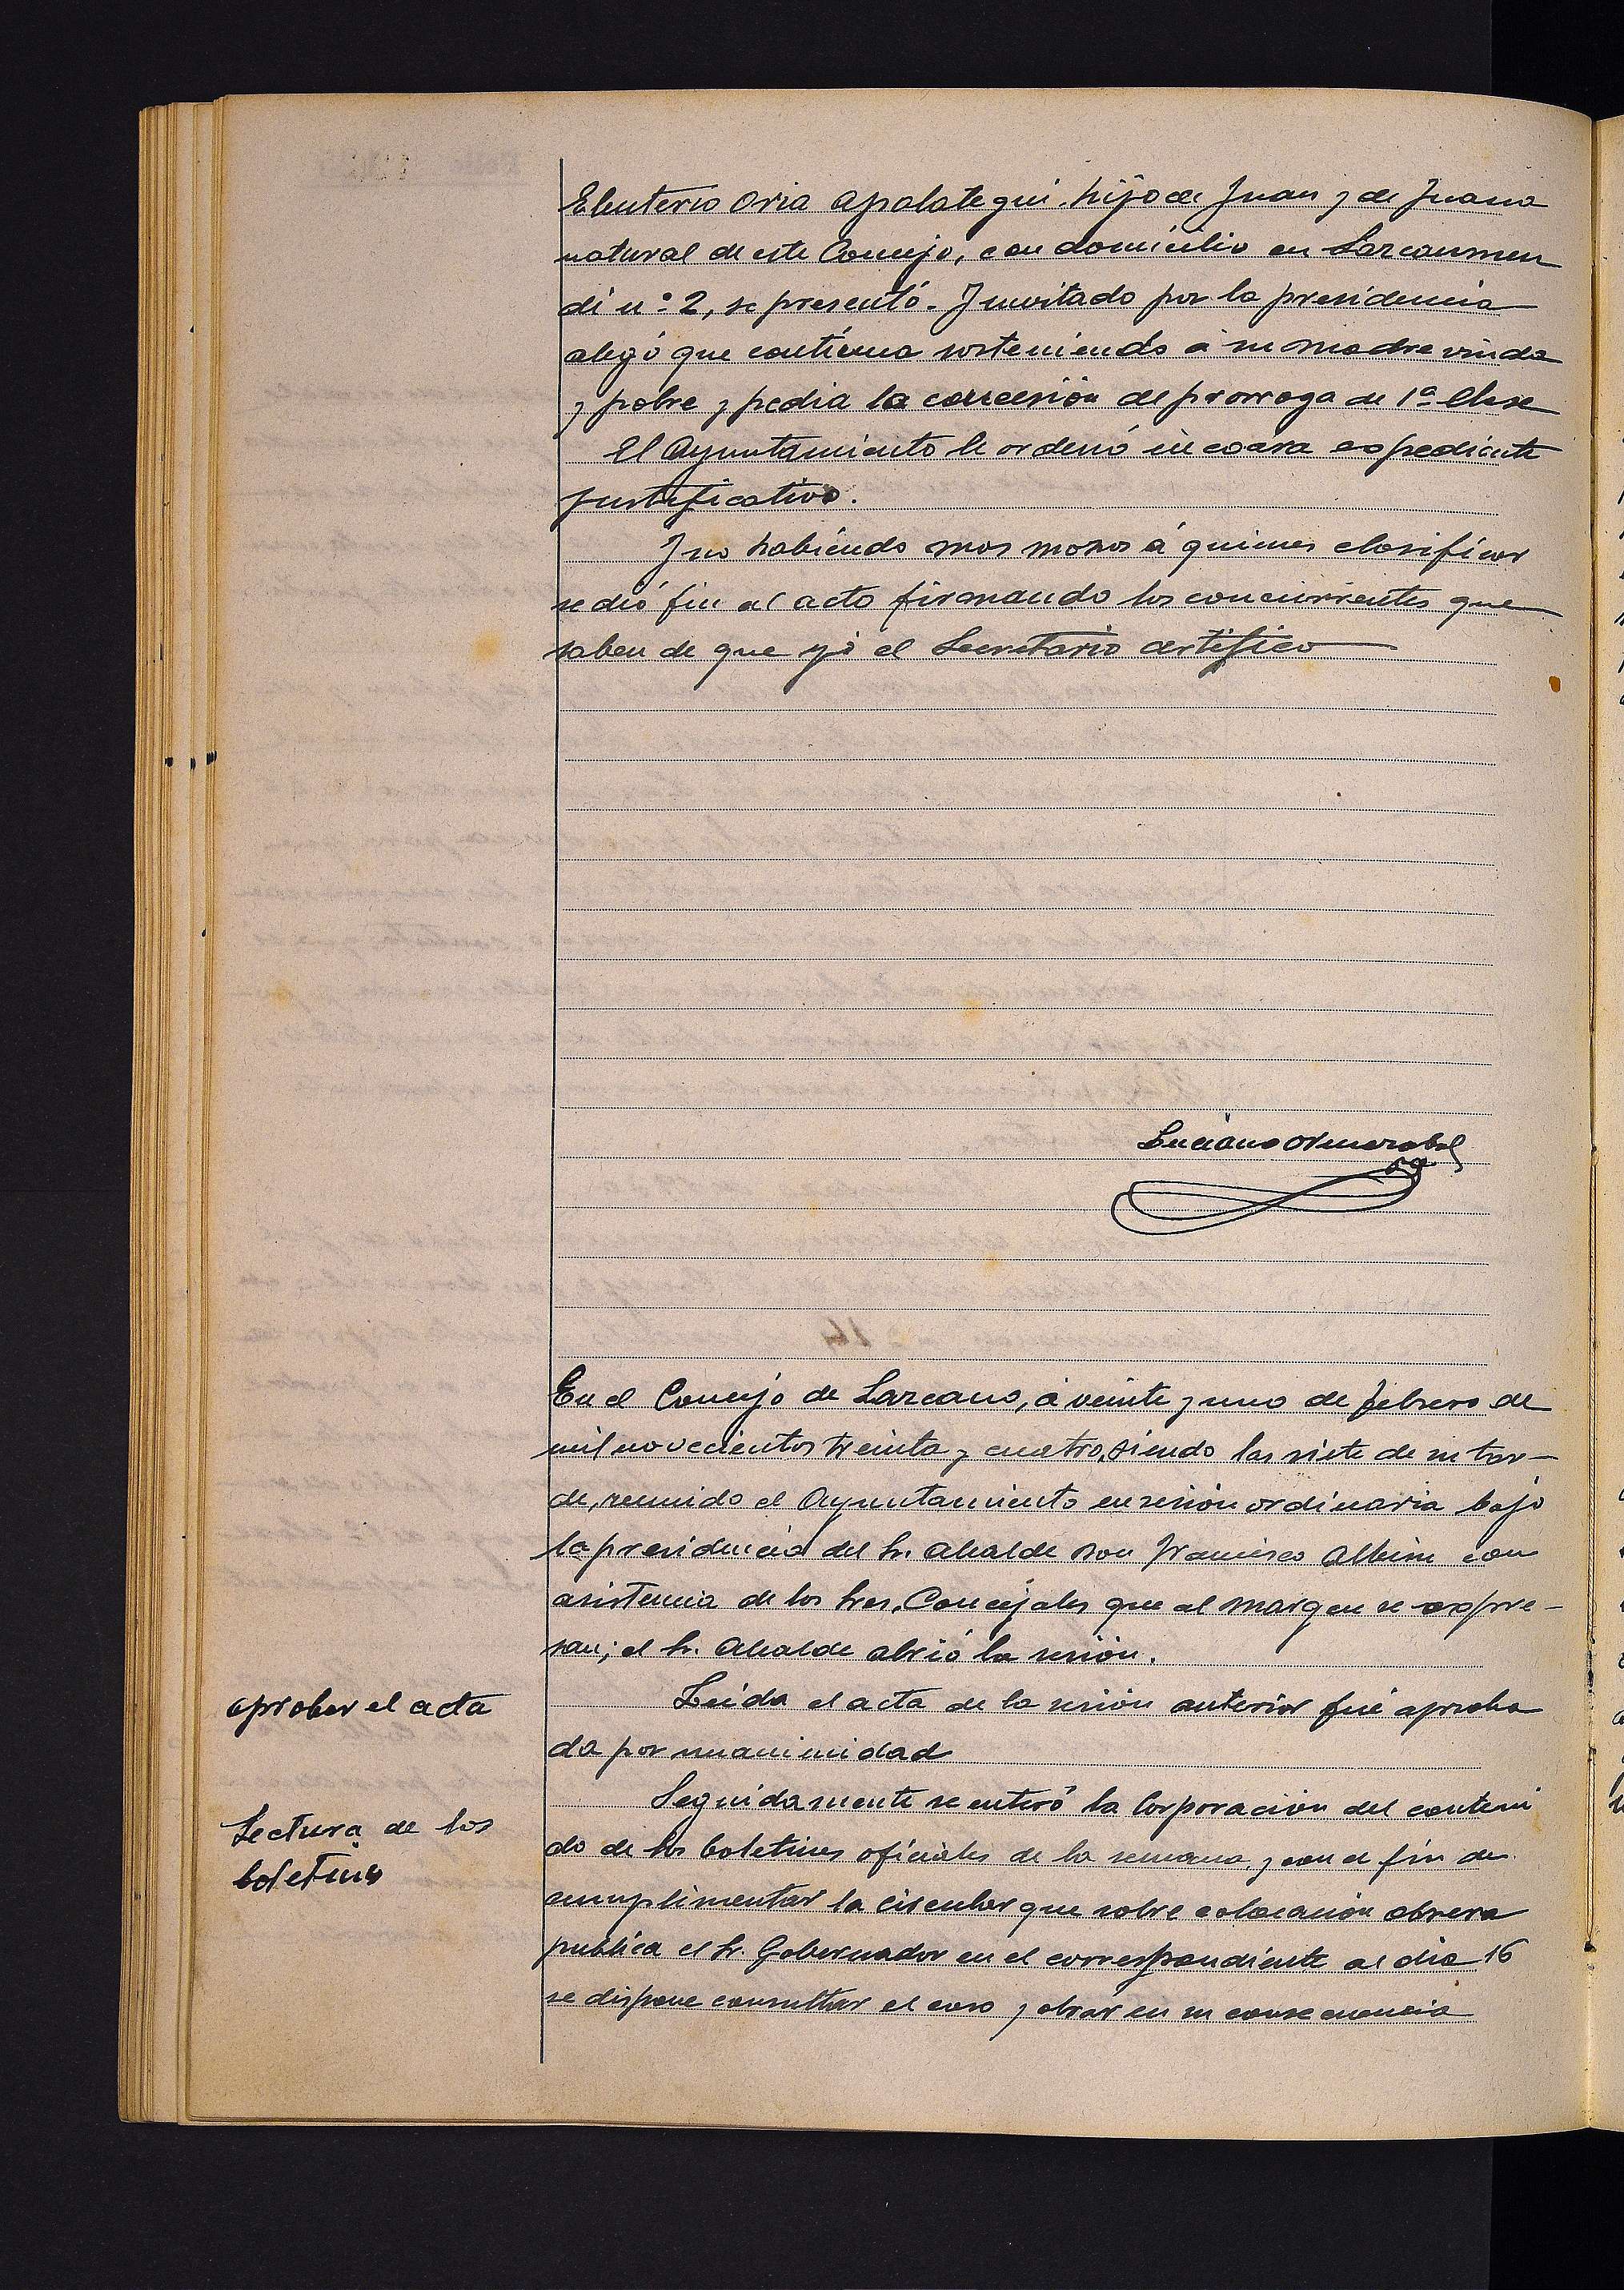 Eleuterio Oria Apalategui, hijo de Juan y de Juana
natural de este Concejo, con domicilio en Lazcanmen
di nº 2, se presentó. Invitado por la presidencia
alegó que continua sosteniendo á su madre viuda
y pobre y pedia la concesión de prorroga de 1ª clase
El Ayuntamiento le ordenó incoara expediente
justificativo.
Y no habiendo mas mozos á quienes clasificar
se dió fin al acto firmando los concurrentes que
saben de que yó el Secretario certifico
Luciano
En el Concejo de Lazcano, á veinte y uno de febrero de
mil novecientos treinta y cuatro, siendo las siete de su tar-
de, reunido el Ayuntamiento en sesión ordinaria bajo
la presidencia del Sr. Alcalde Don Francisco Albisu con
asistencia de los Sres. Concejales que al margen se expre-
san; el Sr. Alcalde abrió la sesión.
aprobar el acta
Leida el acta de la sesión anterior fué aproba
da por unanimidad
Lectura de los
boletines
Seguidamente se enteró la Corporación del conteni
do de los boletines oficiales de la semana, y con el fin de
cumplimentar la circular que sobre colocación obrera
publica el Sr. Gobernador en el correspondiente al dia 16
se dispone consultar el caso y obrar en su consecuencia